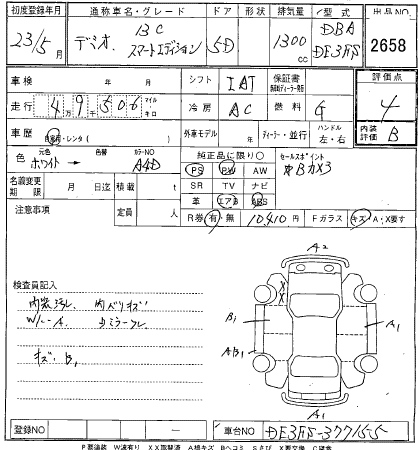 初度登録年月 通称車名・グレード ドア 形状 排気量 型式 出品NO
23/5月 デミオ 13C スマートエディション 5D 1300cc DBA DE3FS 2658
車検 年 月 シフト IAT 保証書 燃料 G 評価点 4
走行 4万9千506 マイル キロ 冷房 AC
車歴 自家用・レンタ( ) 外車モデル 年 ディーラー・並行 ハンドル 左・右 内装評価 B
色 元色 ホワイト→ 色替 カラーNO A4D 純正品に限り○ セールスポイント
名義変更期限 月 日迄 積載 t PS PW AW
SR TV ナビ
注意事項 定員 人 革 エアB ABS
R券 有・無 10410円 Fガラス キズ A・X要す
A2
検査員記入
内装汚れ 内バリキズ
W/ーA
キズ B1
B1
AB1
A1
A1
登録NO ー 車台NO DE3FS-377155
P要塗装 W波有り XX取替済 A線キズ Bヘコミ Sさび X要交換 C腐食